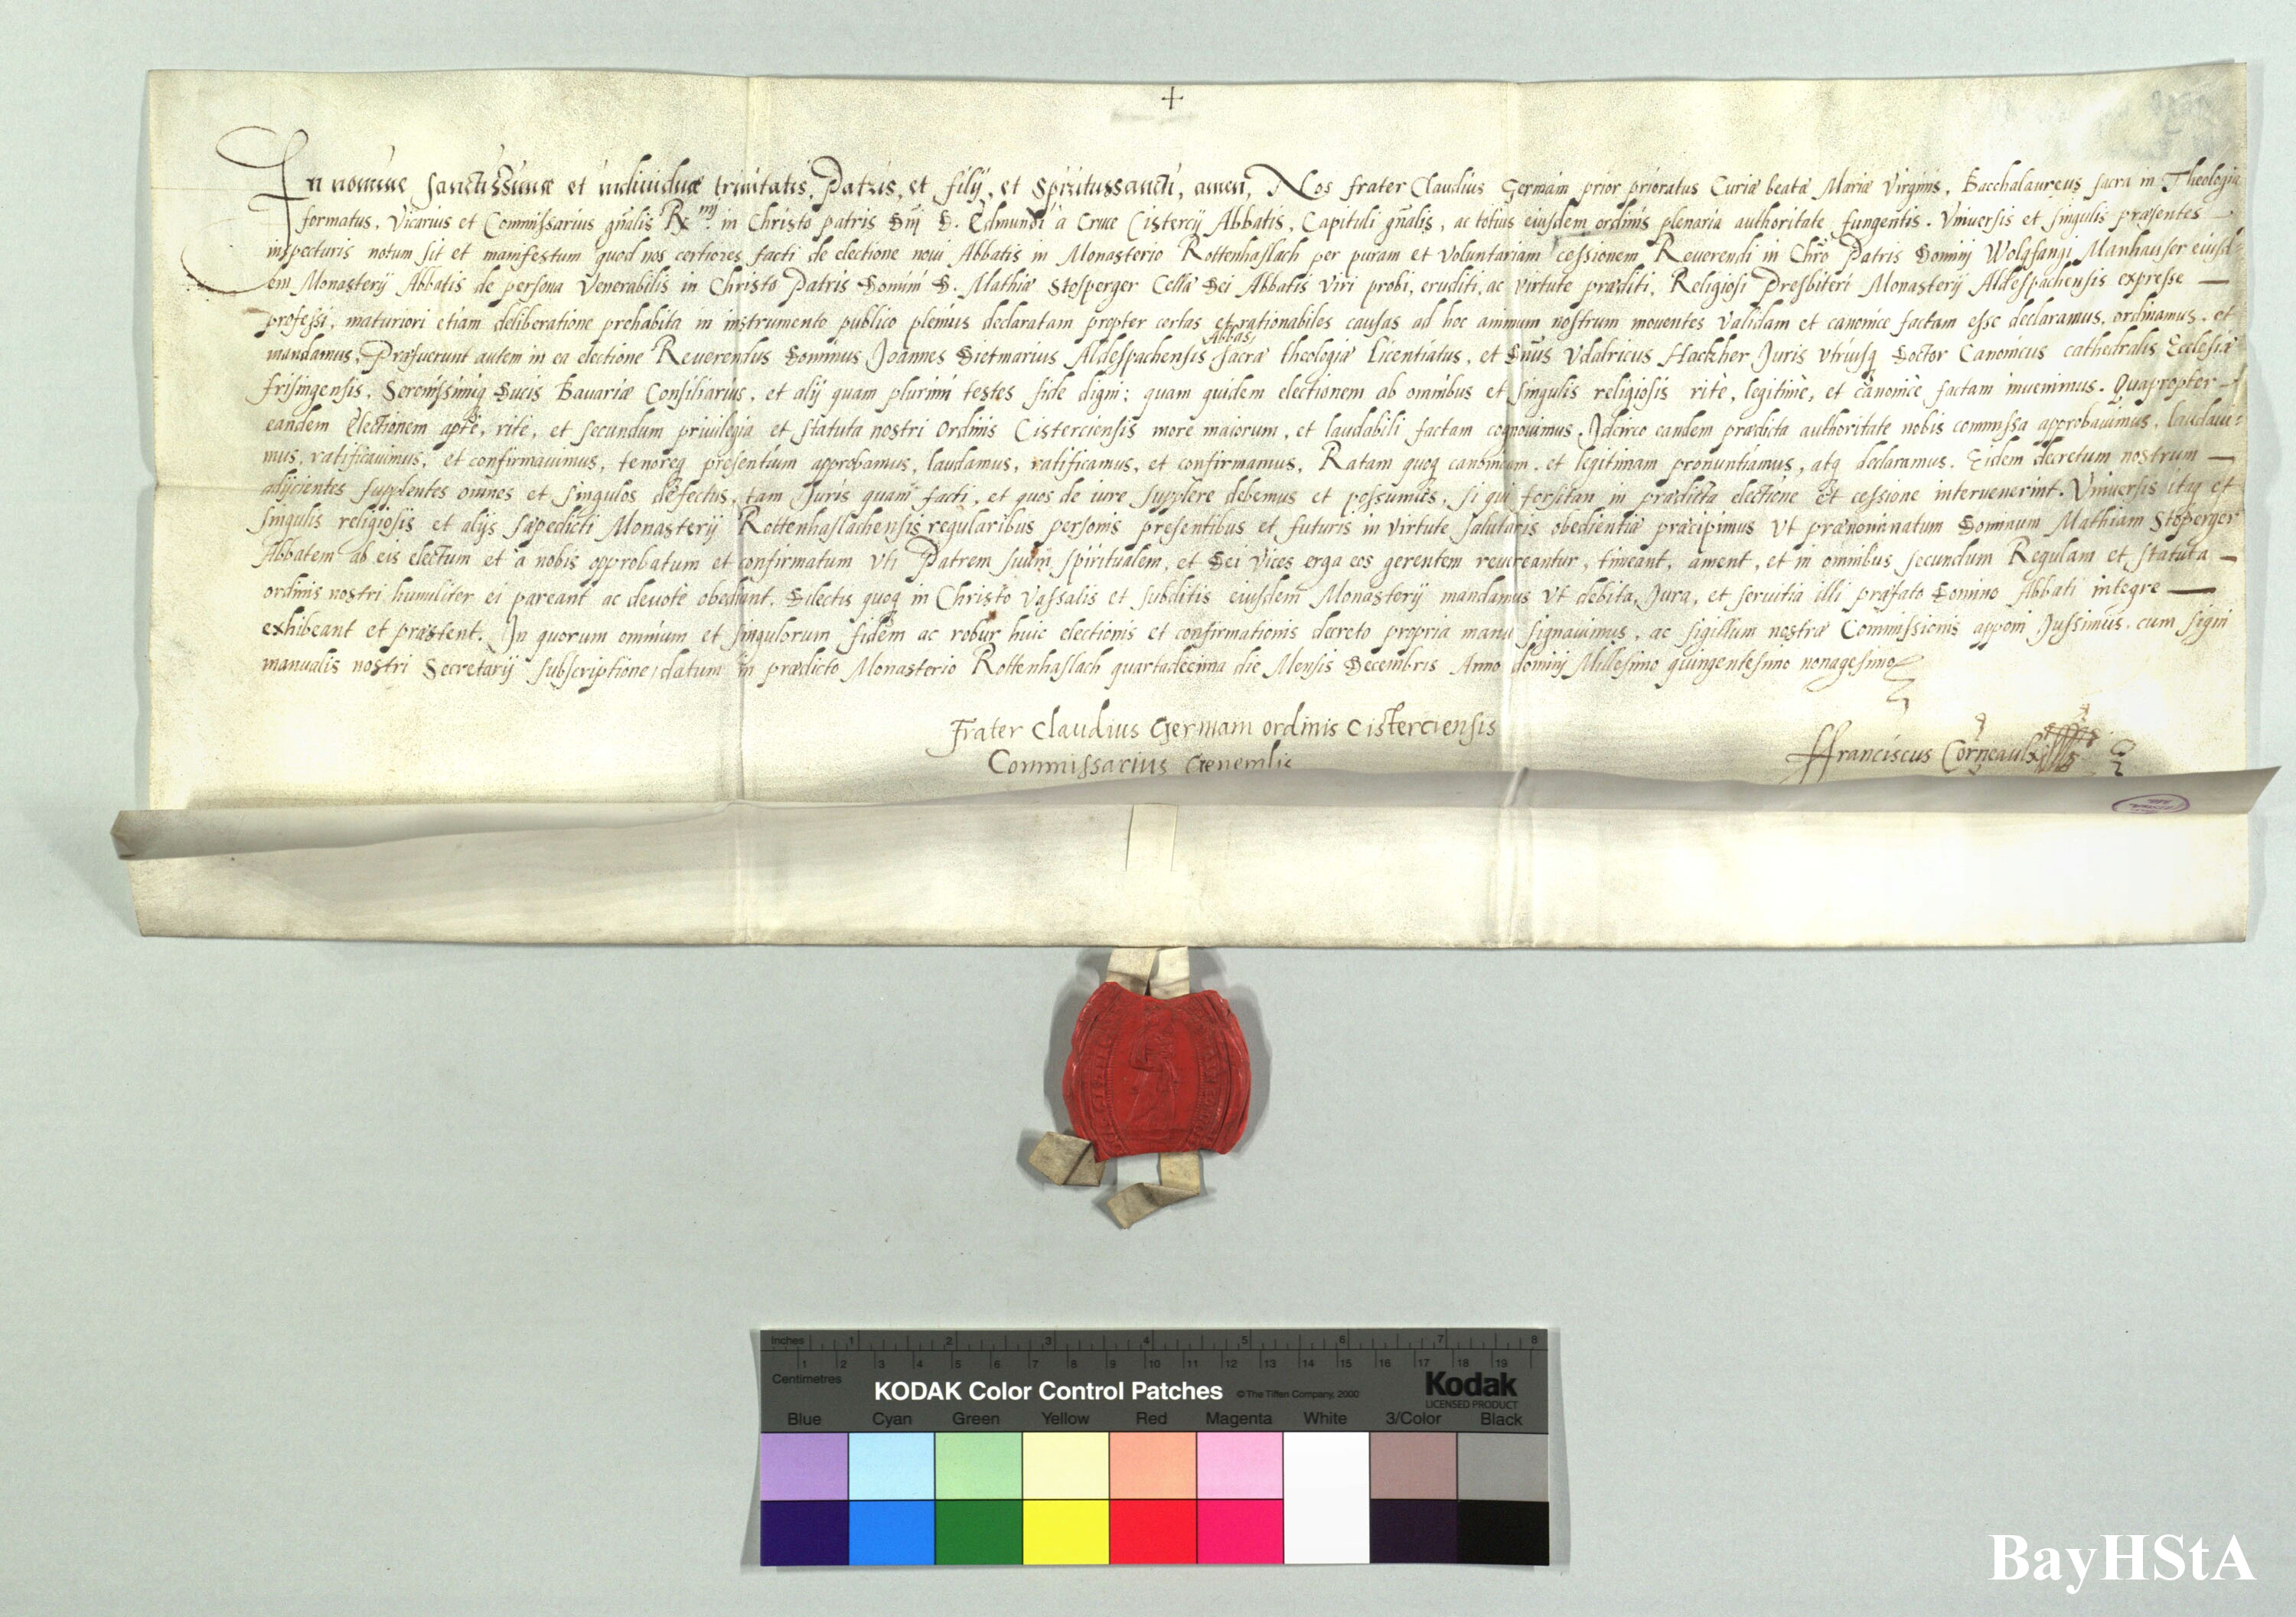 +
In nomine sanctissimæ et individuæ trinitatis, Patris, et filij, et Spiritussancti, amen, Nos frater Claudius Germain prior prioratus Curiæ beatæ Mariæ Virginis, Bacchalaureus sacra in Theologia
formatus, Vicarius et Commissarius gn̄alis R.mi in Christo patris Dn̄j D. Edmundi à Cruce Cistercij Abbatis, Capituli gn̄alis, ac totius eiusdem ordinis plenaria authoritate fungentis. Vniuersis et singulis præsentes
inspecturis notum sit et manifestum quod nos certiores facti de electione noui Abbatis in Monasterio Rottenhaslach per puram et voluntariam cessionem Reuerendi in Chrō Patris Dominj Wolfgangi Manhauser eiusd-
em Monasterij Abbatis de persona Venerabilis in Christo Patris Domini D. Mathiæ Stosperger Cella Dei Abbatis viri probi, eruditi, ac virtute præditi, Religiosi Presbiteri Monasterij Aldespachensis expresse
professi, maturiori etiam deliberatione prehabita in instrumento publico plenius declaratam propter certas et rationabiles causas ad hoc animum nostrum mouentes validam et canonice factam esse declaramus, ordinamus, et
mandamus, Præfuerunt autem in ea electione Reuerendus Dominus Joannes Dietmarius Aldespachensis Abbas, sacræ theologiæ licentiatus, et Dn̄us Vdalricus Hackher Juris vtriusq Doctor Canonicus cathedralis Ecclesiæ
frisingensis, Serenissimiq Ducis Bauariæ Consiliarius, et alij quam plurimi testes fide digni; quam quidem electionem ab omnibus et singulis religiosis ritè, legitimè, et canonicè factam inuenimus. Quapropter
eandem Electionem aptè, ritè, et secundum priuilegia et statuta nostri Ordinis Cisterciensis more maiorum, et laudabili factam cognouimus. Idcirco eandem prædicta authoritate nobis commissa approbauimus, laudaui-
mus, ratificauimus, et confirmauimus, tenoreq presentium approbamus, laudamus, ratificamus, et confirmamus, Ratam quoq canonicam, et legitimam pronuntiamus, atq declaramus. Eidem decretum nostrum
adijcientes supplentes omnes et singulos defectus, tam Juris quam facti, et quos de iure supplere debemus et possumus, si qui forsitan in prædicta electione et cessione interuenerint. Vniuersis itaq et
singulis religiosis et alijs sæpedicti Monasterij Rottenhaslachensis regularibus personis presentibus et futuris in virtute salutaris obedientiæ præcipimus vt prænominatum Dominum Mathiam Stosperger
Abbatem ab eis electum et à nobis approbatum et confirmatum vti Patrem suum spiritualem, et Dei vices erga eos gerentem reuereantur, timeant, ament, et in omnibus secundum Regulam et statuta
ordinis nostri humiliter ei pareant ac deuotè obediant. Dilectis quoq in Christo vassalis et subditis eiusdem Monasterij mandamus vt debita, Jura, et seruitia illi præfato Domino Abbati integre
exhibeant et præstent. In quorum omnium et singulorum fidem ac robur huic electionis et confirmationis decreto propria manu signauimus, ac sigillum nostræ Commissionis apponi Jussimus. cum signi
manualis nostri Secretarij subscriptione, datum in prædicto Monasterio Rottenhaslach quartadecima die Mensis Decembris Anno dominj Millesimo quingentesimo nonagesimo
Frater Claudius Germain ordinis Cisterciensis
Commissarius Generalis
Franciscus
Inches 1 2 3 4 5 6 7 8
1 2 3 4 5 6 7 8 9 10 11 12 13 14 15 16 17 18 19
Centimetres
KODAK Color Control Patches © The Tiffen Company, 2000 Kodak
LICENSED PRODUCT
Blue Cyan Green Yellow Red Magenta White 3/Color Black
BayHStA